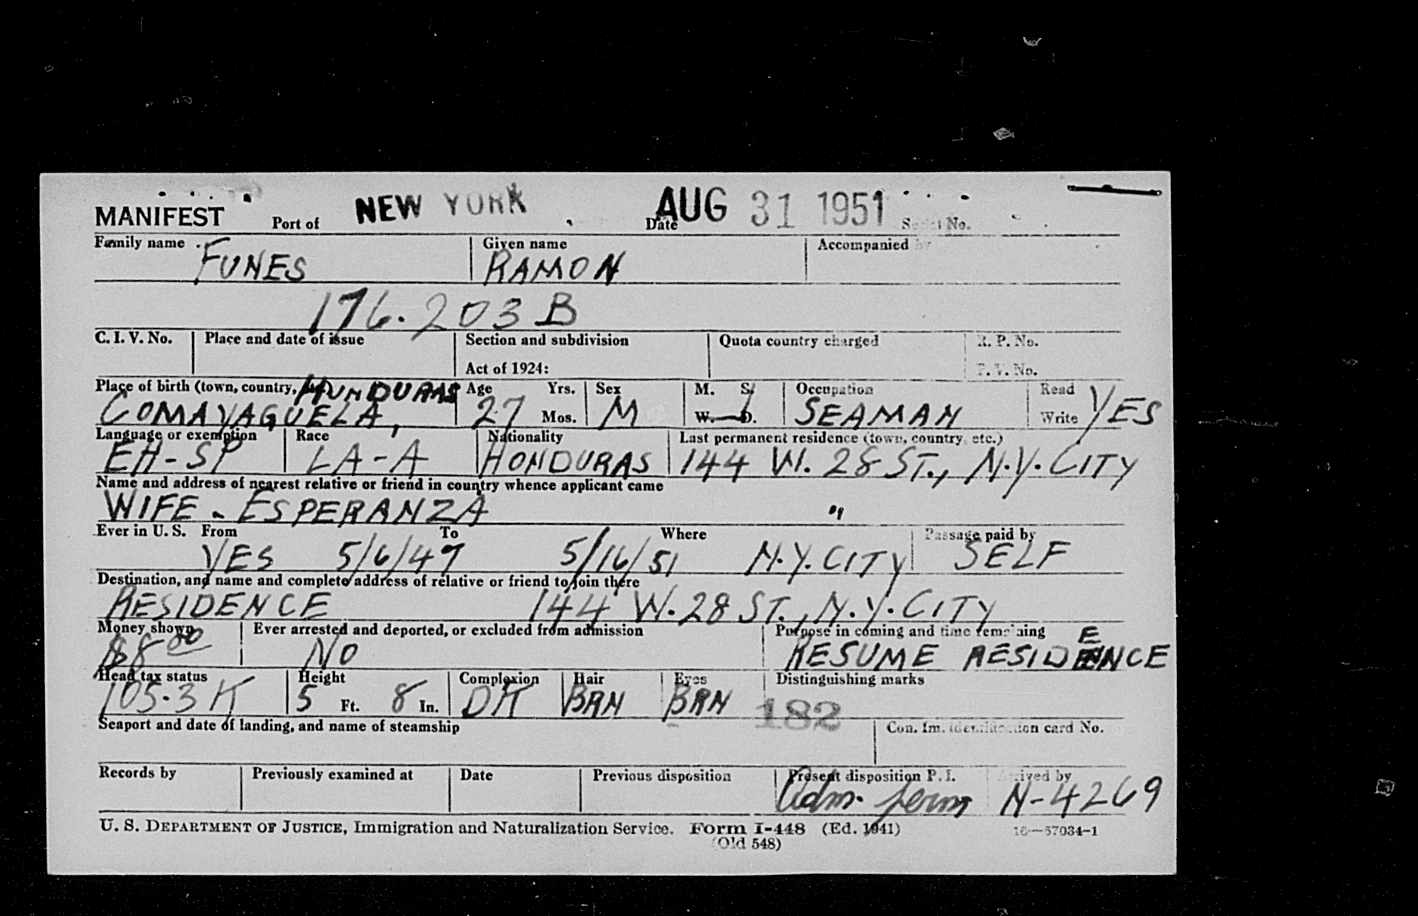 MANIFEST Port of NEW YORK Date AUG 31 1951 Serial No.
Family name Given name Accompanied by
FUNES RAMON
176.203 B
C. I. V. No. Place and date of issue Section and subdivision Quota country charged R. P. No.
Act of 1924: P. V. No.
Place of birth (town, country, HUNDURAS Age Yrs. Sex M. S. Occupation Read YES
COMAYAGUELA, 27 Mos. M W. D. SEAMAN Write
Language or exemption Race Nationality Last permanent residence (town, country, etc.)
EH-SP LA-A HONDURAS 144 W. 28 ST., N.Y. CITY
Name and address of nearest relative or friend in country whence applicant came
WIFE - ESPERANZA "
Ever in U. S. From To Where Passage paid by
YES 5/6/47 5/16/51 N.Y. CITY SELF
Destination, and name and complete address of relative or friend to join there
RESIDENCE 144 W. 28 ST., N.Y. CITY
Money shown Ever arrested and deported, or excluded from admission Purpose in coming and time remaining
$8 00 NO RESUME RESIDENCE
Head tax status Height Complexion Hair Eyes Distinguishing marks
105.3 K 5 Ft. 8 In. DK BRN BRN 182
Seaport and date of landing, and name of steamship Con. Im. identification card No.
Records by Previously examined at Date Previous disposition Present disposition P. I. Arrived by
Adm. perm N-4269
U. S. DEPARTMENT OF JUSTICE, Immigration and Naturalization Service. Form I-448 (Ed. 1941) 16—57034-1
(Old 548)